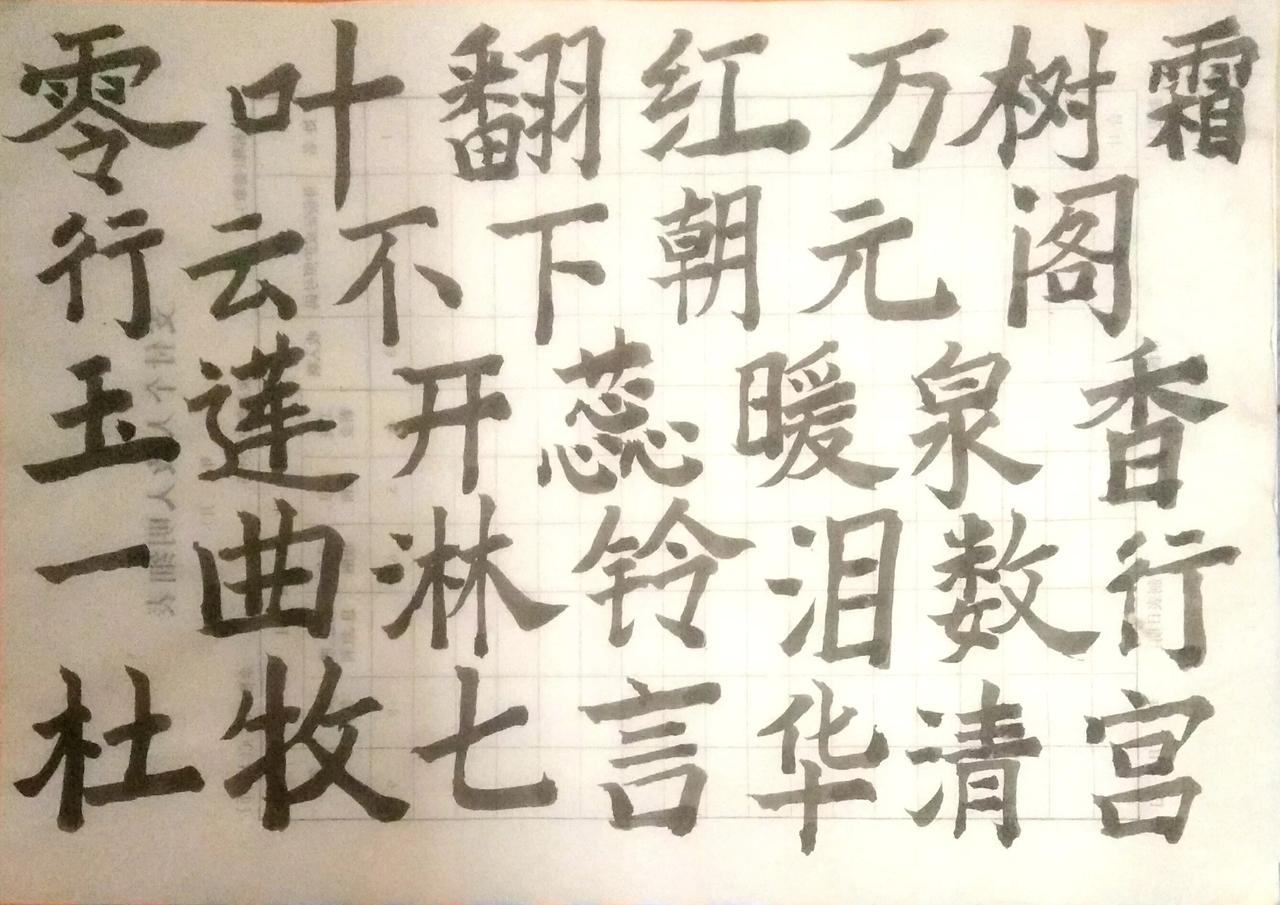 零叶翻红万树霜
行云不下朝元阁
玉莲开蕊暖泉香
一曲淋铃泪数行
杜牧七言华清宫